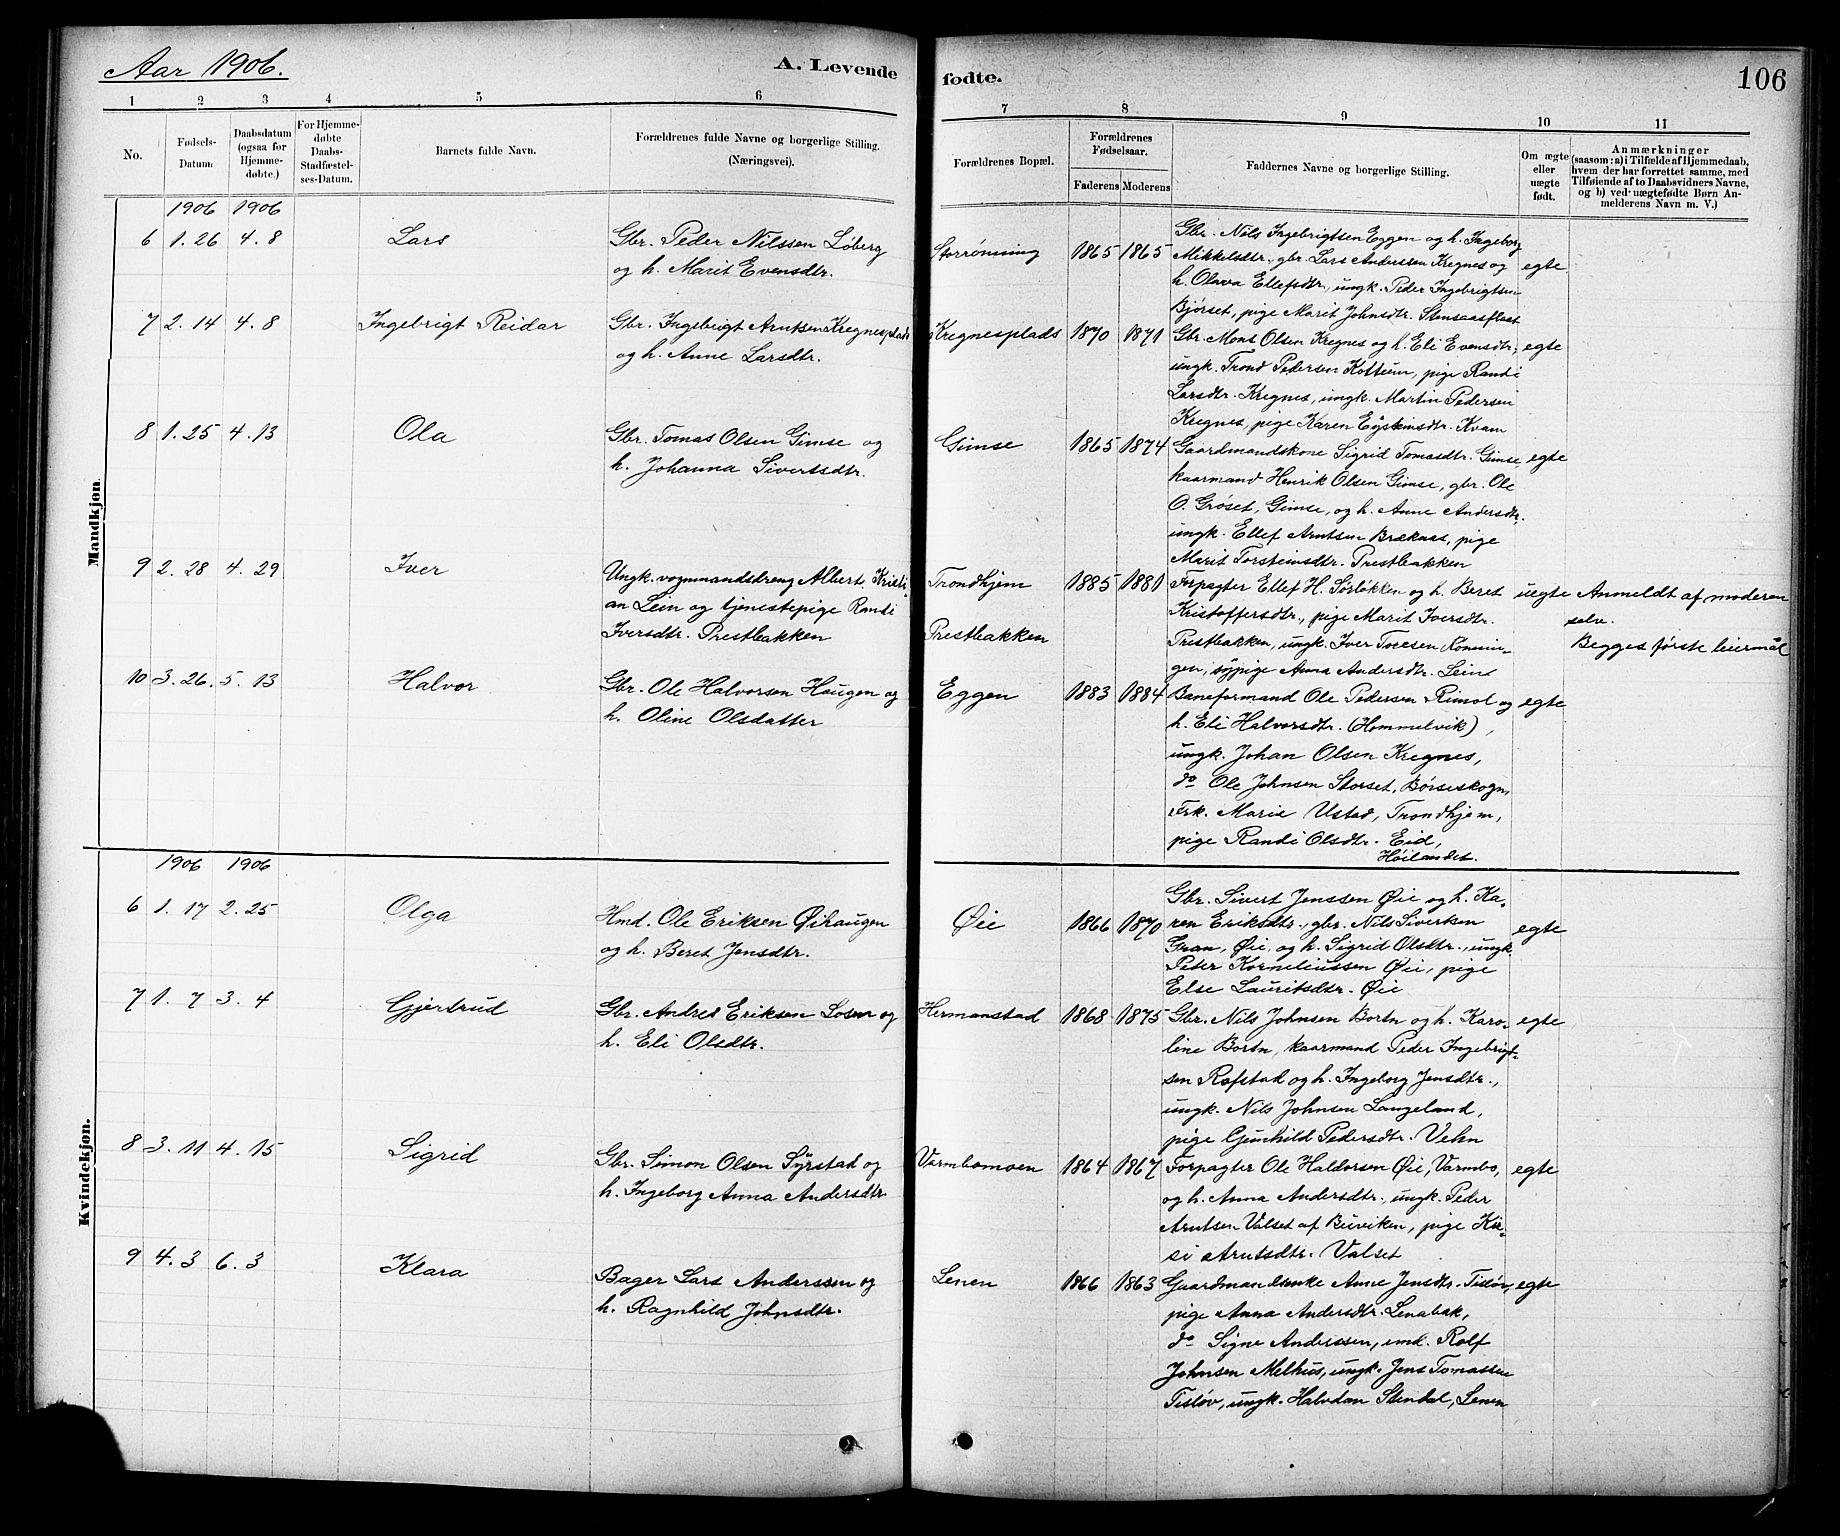 Aar 1906.
A. Levende fødte.
106
1 2 3 4 5 6 7 8 9 10 11
No.
Fødsels-Datum.
Daabsdatum (ogsaa for Hjemme-døbte.)
For Hjemme-døbte Daabs-Stadfæstel-ses-Datum.
Barnets fulde Navn.
Forældrenes fulde Navne og borgerlige Stilling. (Næringsvei).
Forældrenes Bopæl.
Forældrenes Fødselsaar.
Faderens Moderens
Faddernes Navne og borgerlige Stilling.
Om ægte eller uægte født.
Anmærkninger
(saasom: a) i Tilfælde af Hjemmedaab, hvem der har forrettet samme, med Tilføiende af to Daabsvidners Navne, og b) ved uægtefødte Børn Anmelderens Navn m. V.)
Mandkjøn.
1906 1906
6 1.26 4.8 Lars
Gbr. Peder Nilssen Løberg
og h. Marit Evensdtr.
Storrønning 1865 1865
Gbr. Nils Ingebrigtsen Eggen og h. Ingeborg
Mikkelsdtr., gbr. Lars Anderssen Kregnes og
h. Olava Ellefsdtr., ungk. Peder Ingebrigtsen
Bjørset, pige Marit Johnsdtr. Stensaasflaat
egte
7 2.14 4.8 Ingebrigt Reidar
Gbr. Ingebrigt Arntsen Kregnesplads
og h. Anne Larsdtr.
Kregnesplads 1870 1871
Gbr. Mons Olsen Kregnes og h. Eli Evensdtr.,
ungk. Trond Pedersen Kottum, pige Randi
Larsdtr. Kregnes, ungk. Martin Pedersen
Kregnes, pige Karen Eystensdtr. Kvam
egte
8 1.25 4.13 Ola
Gbr. Tomas Olsen Gimse og
h. Johanna Sivertsdtr.
Gimse 1865 1874
Gaardmandskone Sigrid Tomasdtr. Gimse,
kaarmand Henrik Olsen Gimse, gbr. Ole
O. Grøset, Gimse, og h. Anne Andersdtr.
ungk. Ellef Arntsen Brækaas, pige
Marit Torsteinsdtr. Prestbakken
egte
9 2.28 4.29 Iver
Ungk. vognmandsdreng Albert Kristi-
an Lein og tjenestepige Randi
Iversdtr. Prestbakken
Trondhjem
Prestbakken
1885 1881
Forpagter Ellef H. Sørløkken og h. Beret
Kristoffersdtr., pige Marit Iversdtr.
Prestbakken, ungk. Iver Toresen Rønnin-
gen, sypige Anna Andersdtr. Lein
uegte
Anmeldt af moderen
selv.
Begges første leiermål
10 3.26 5.13 Halvor
Gbr. Ole Halvorsen Haugen og
h. Oline Olsdatter
Eggen 1883 1884
Baneformand Ole Pedersen Rimol og
h. Eli Halvorsdtr. (Hommelvik),
ungk. Johan Olsen Kregnes,
do Ole Johnsen Storset, Børseskogn,
Frk. Marie Ustad, Trondhjem,
pige Randi Olsdtr. Eid,
Høilandet.
egte
Kvindekjøn.
1906 1906
6 1.17 2.25 Olga
Hmd. Ole Eriksen Øihaugen
og h. Beret Jensdtr.
Øie 1866 1870
Gbr. Sivert Jenssen Øie og h. Ka-
ren Eriksdtr., gbr. Nils Sivertsen
Gran, Øie, og h. Sigrid Olsdtr., ungk.
Peter Korneliussen Øie, pige
Else Lauritsdtr. Øie
egte
7 1.7 3.4 Gjertrud
Gbr. Andres Eriksen Losen og
h. Eli Olsdtr.
Hermanstad 1868 1875
Gbr. Nils Johnsen Bortn og h. Karo-
line Bortn, kaarmand Peder Ingebrigt-
sen Rofstad og h. Ingeborg Jensdtr.,
ungk. Nils Johnsen Langeland,
pige Gunhild Pedersdtr. Vehn
egte
8 3.11 4.15 Sigrid
Gbr. Simon Olsen Syrstad og
h. Ingeborg Anna Andersdtr.
Varmbomoen 1864 1867
Forpagter Ole Haldorsen Øie, Varmbo,
og h. Anna Andersdtr., ungk. Peder
Arntsen Valset af Buviken, pige Kir-
si Arntsdtr. Valset
egte
9 4.3 6.3 Klara
Bager Lars Anderssen og
h. Ragnhild Johnsdtr.
Lenen 1866 1863
Gaardmandsenke Anne Jensdtr. Tisløv,
pige Anna Andersdtr. Lenabak,
do Signe Anderssen, smd. Rolf
Johnsen Melhus, ungk. Jens Tomassen
Tisløv, ungk. Halvdan Stendal, Lenen
egte